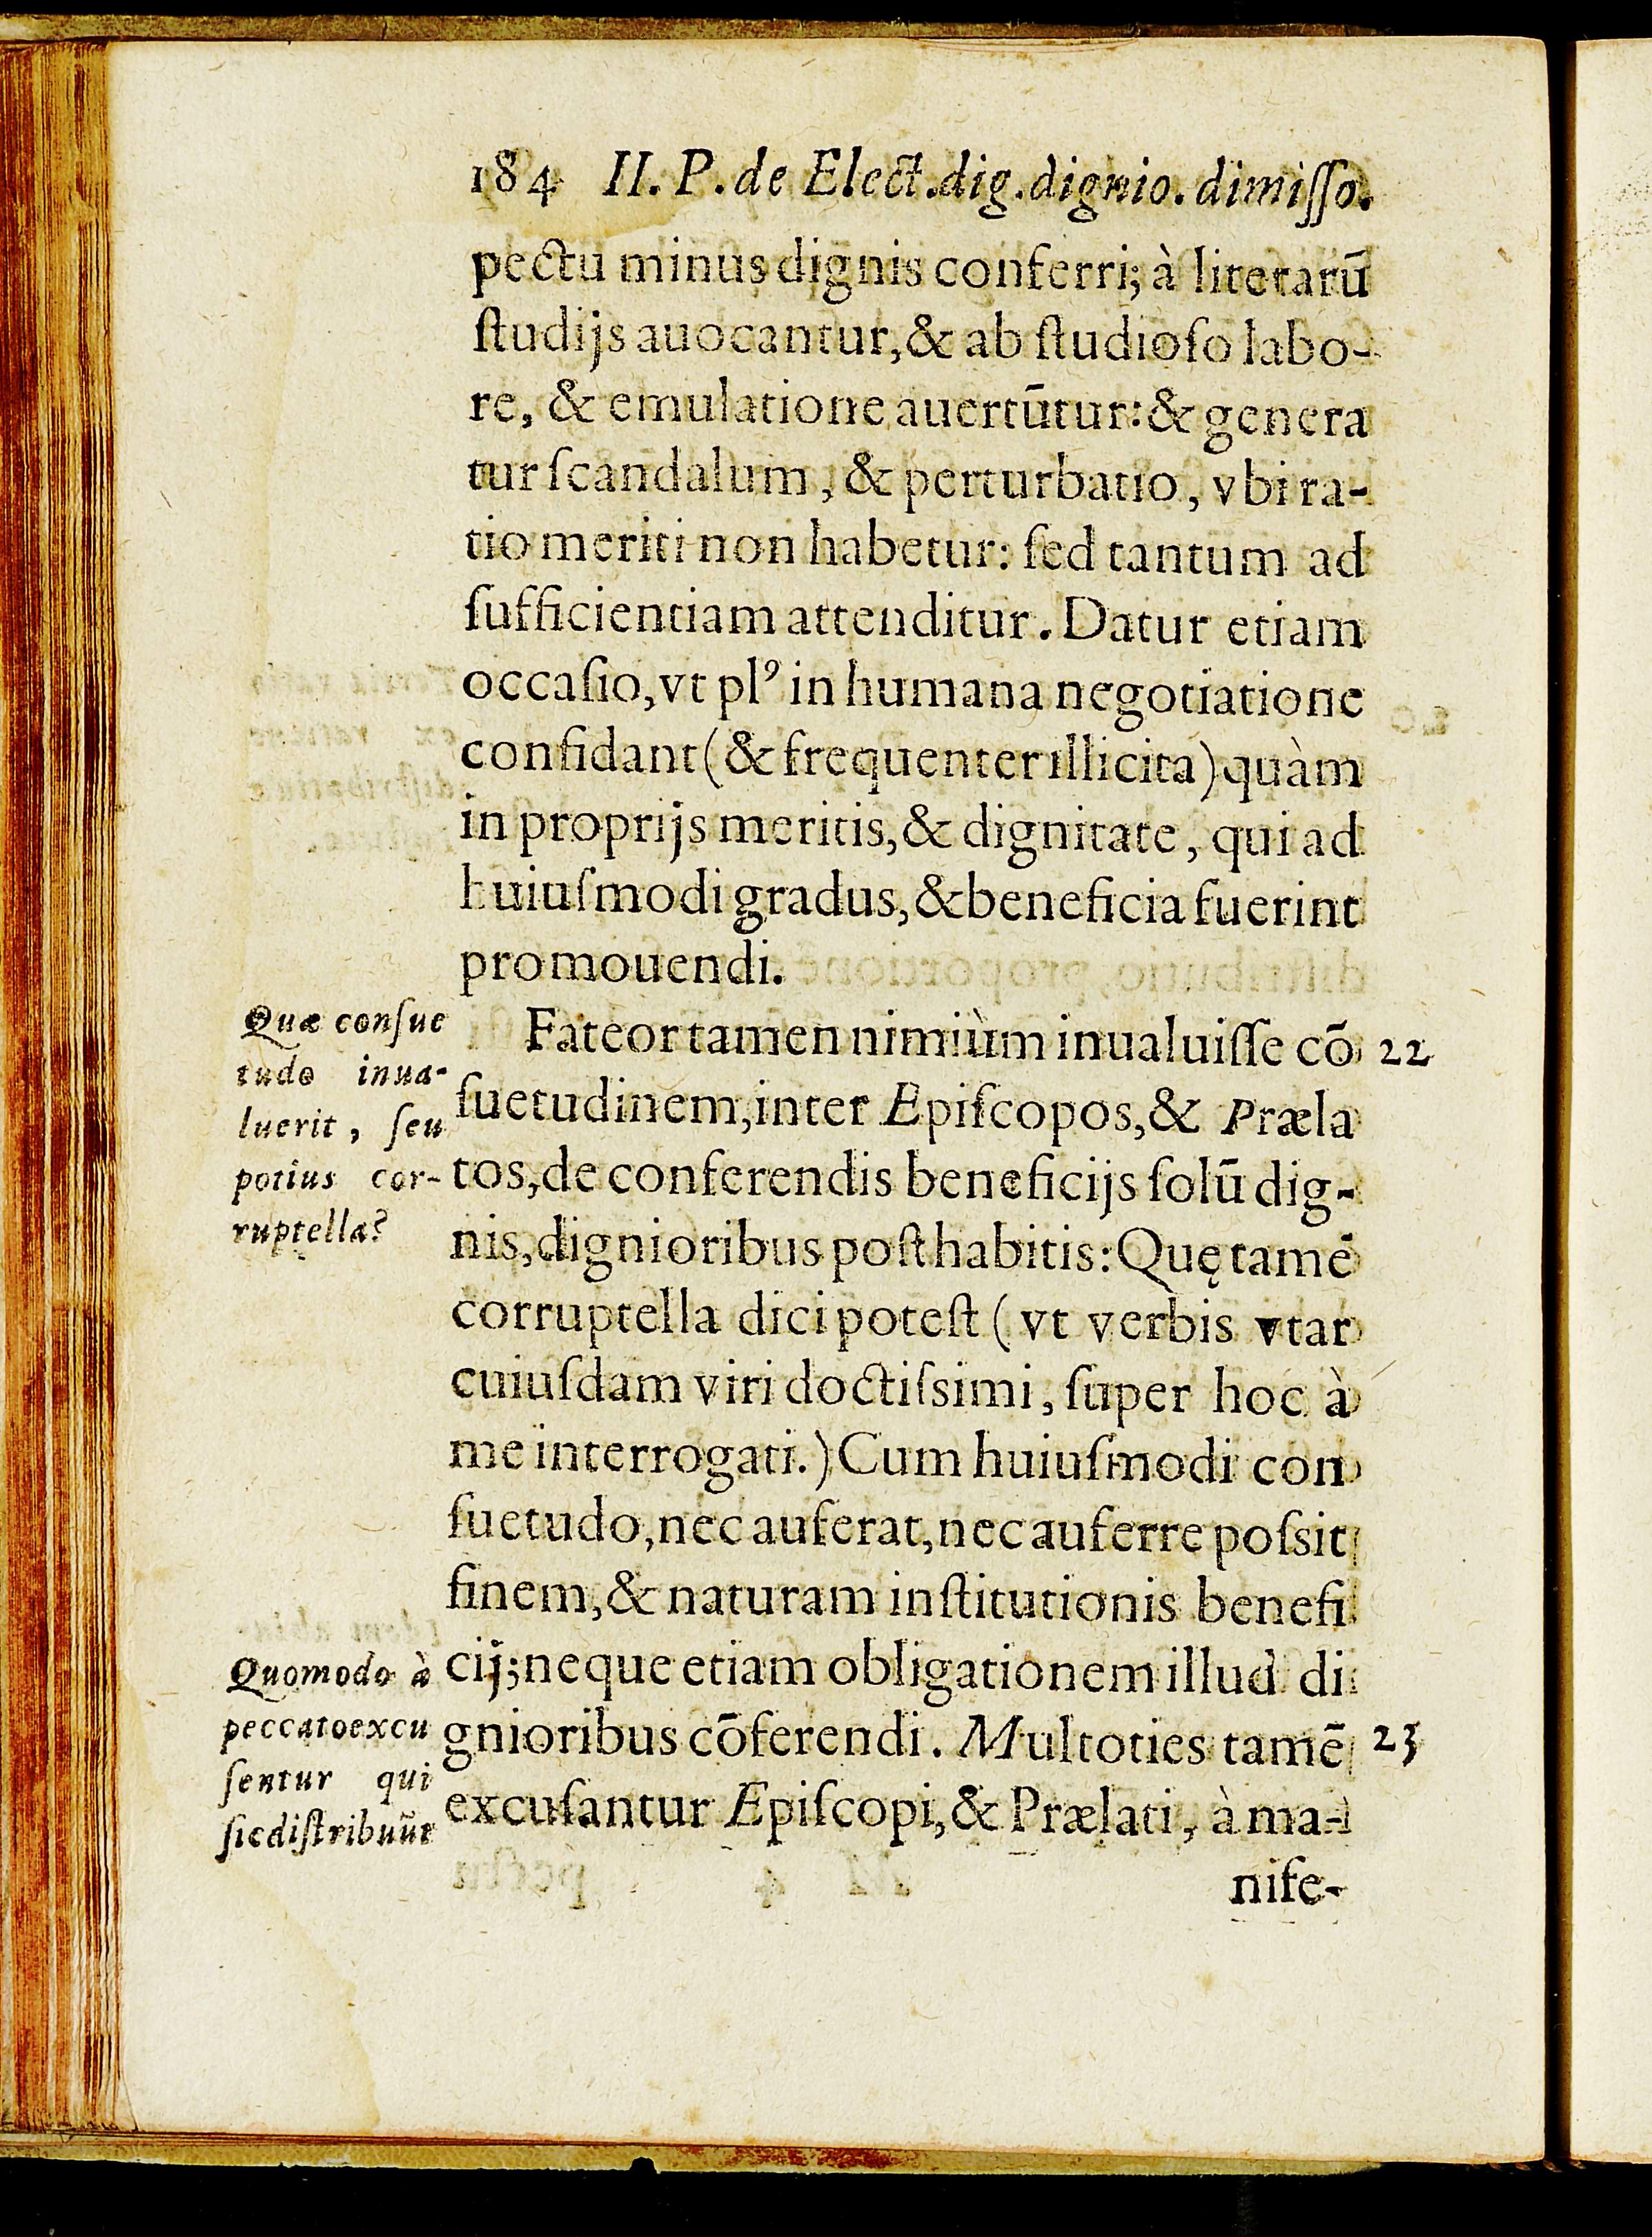 184 II. P. de Elect. dig. dignio. dimiſſo.
pectu minus dignis conferri; à literarū
ſtudijs auocantur, & ab ſtudioſo labo-
re, & emulatione auertūtur: & genera
tur ſcandalum, & perturbatio, vbi ra-
tio meriti non habetur: ſed tantum ad
ſufficientiam attenditur. Datur etiam
occaſio, vt plꝰ in humana negotiatione
confidant (& frequenter illicita) quàm
in proprijs meritis, & dignitate, qui ad
huiuſmodi gradus, & beneficia fuerint
promouendi.
Fateor tamen nimiùm inualuiſſe cō
ſuetudinem, inter Epiſcopos, & Præla
tos, de conferendis beneficijs ſolū dig-
nis, dignioribus poſthabitis: Quę tamē
corruptella dici poteſt (vt verbis vtar
cuiuſdam viri doctiſsimi, ſuper hoc à
me interrogati.) Cum huiuſmodi con
ſuetudo, nec auferat, nec auferre poſsit
finem, & naturam inſtitutionis benefi
cij; neque etiam obligationem illud di
gnioribus cōferendi. Multoties tamē
excuſantur Epiſcopi, & Prælati, à ma-
nife-
Quæ conſue
tudo inua-
luerit, ſeu
potius cor-
ruptella?
Quomodo à
peccato excu
ſentur qui
ſic diſtribuūt
22
23